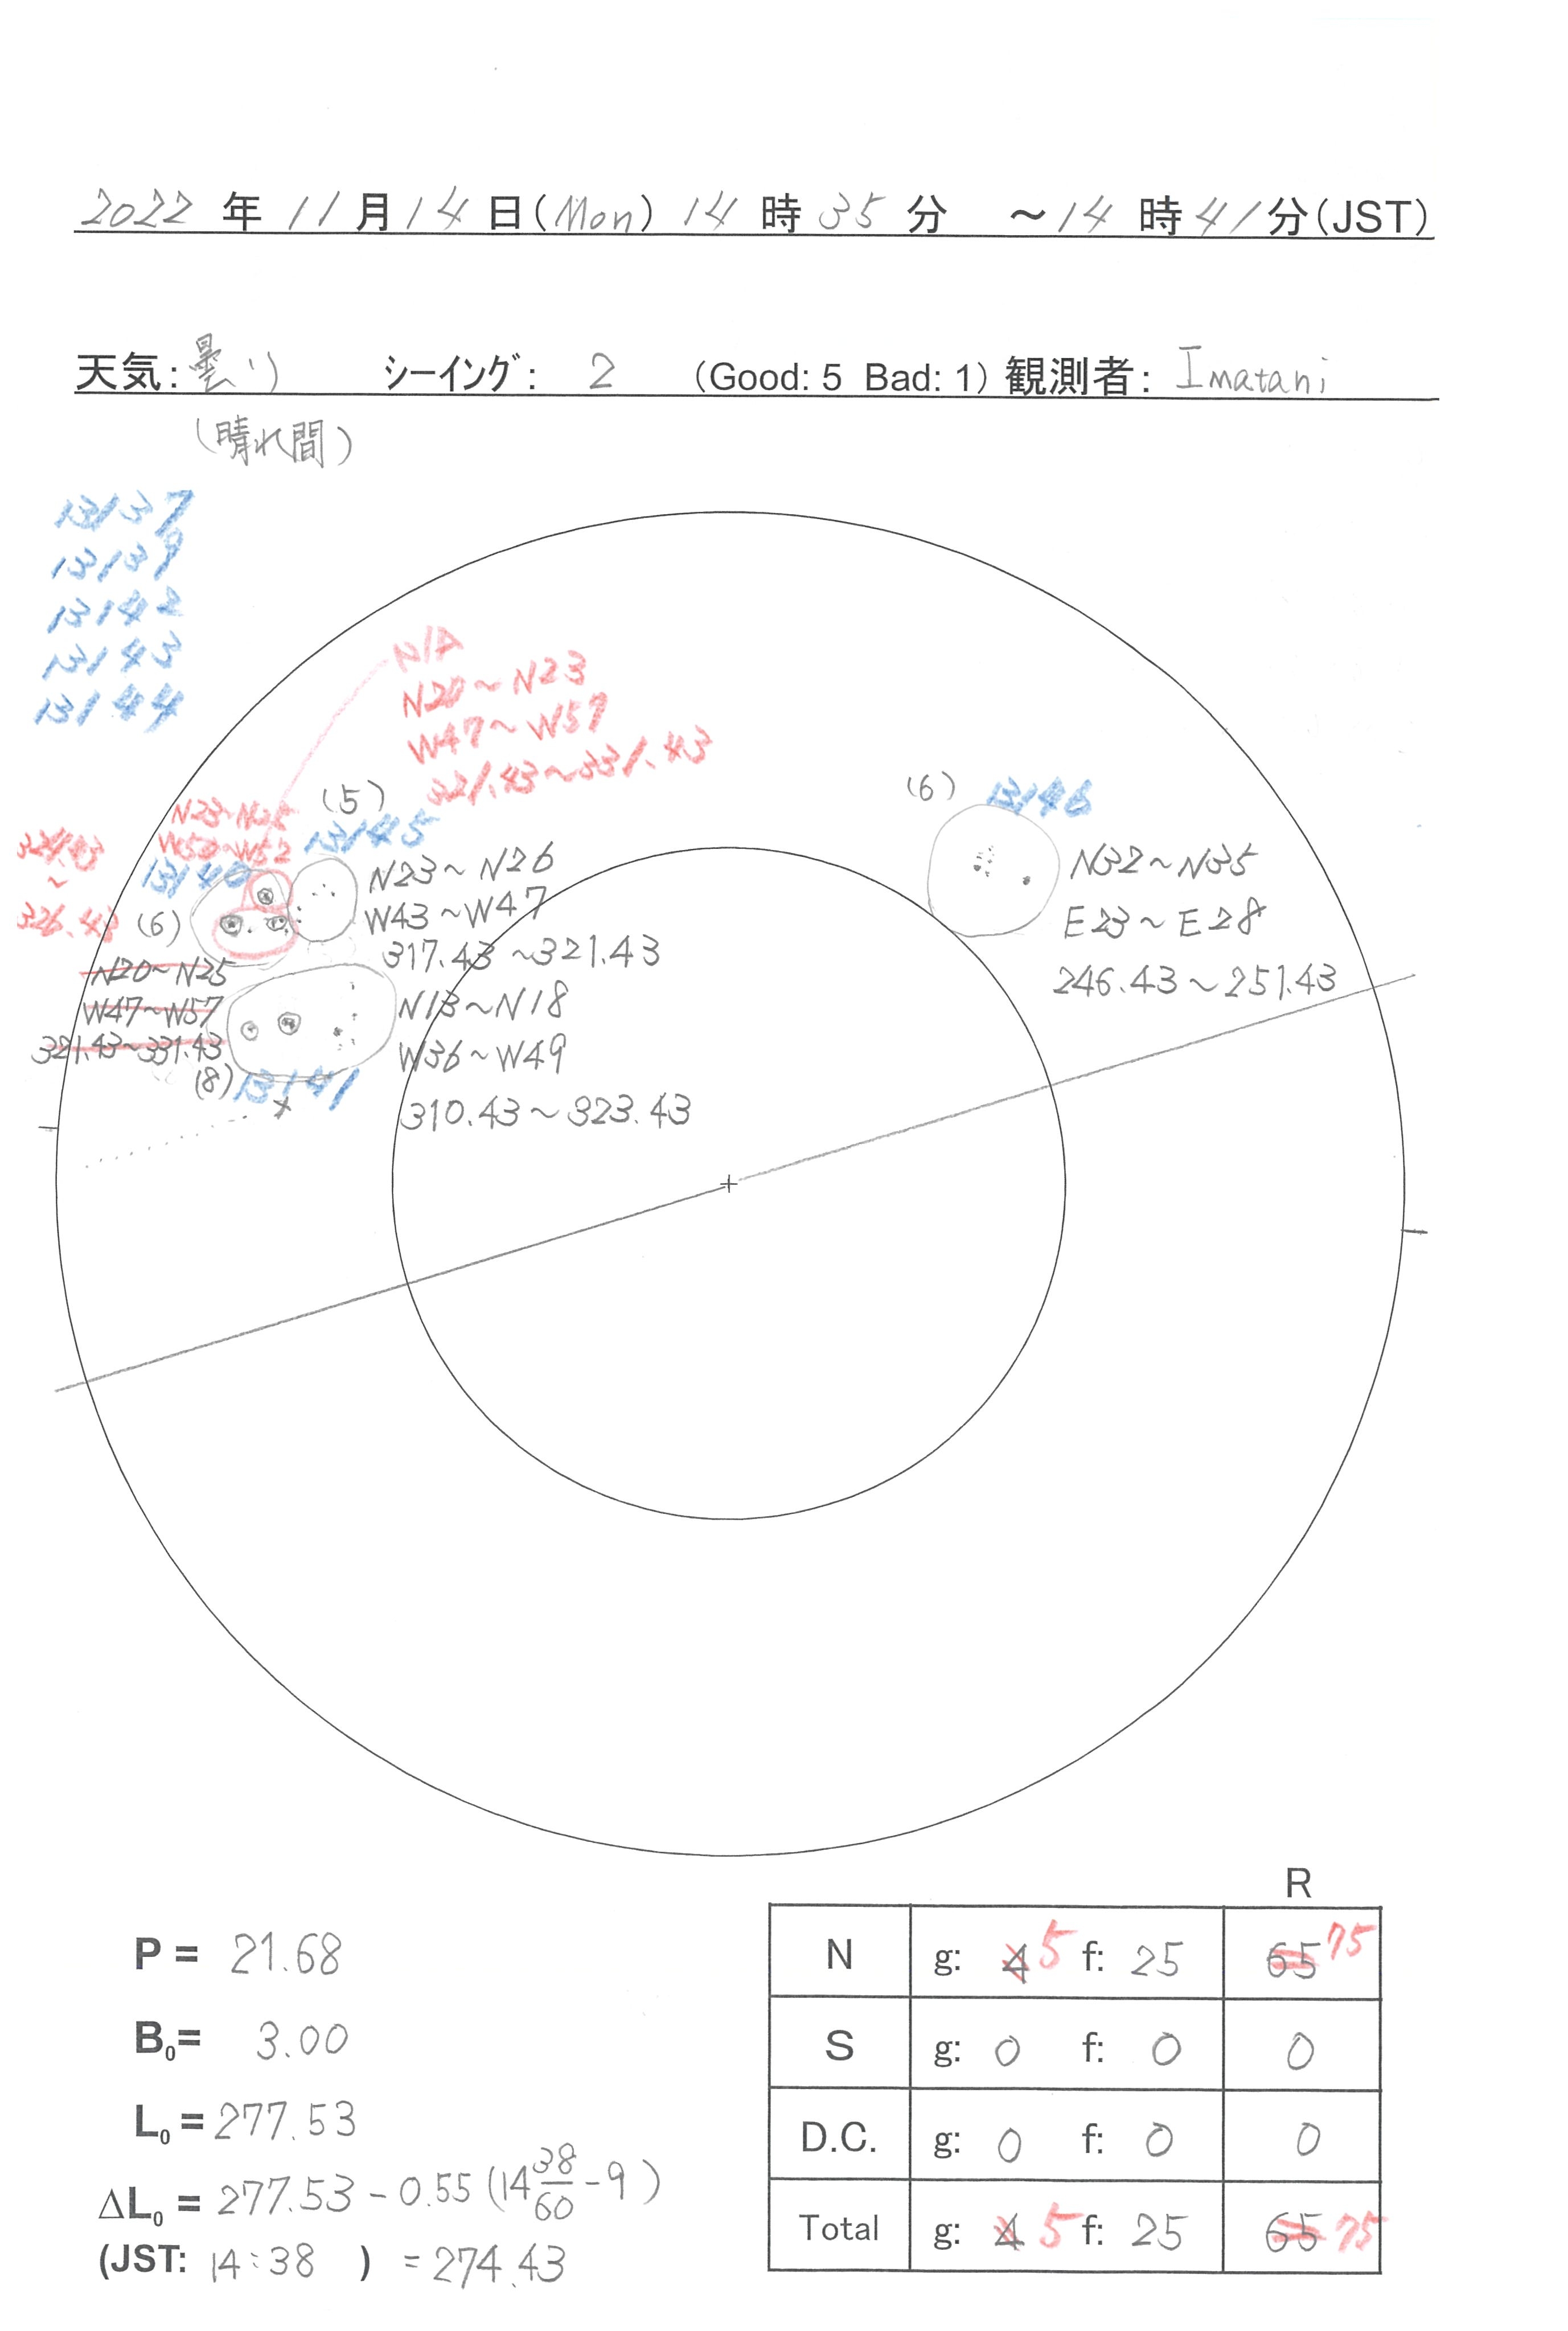 2022 年 11 月 14 日(Mon) 14 時 35 分 ～14 時 41 分(JST)
天気: 曇り シーイング: 2 (Good: 5 Bad: 1) 観測者: Imatani
(晴れ間)
13137
13139
13142
13143
13144
N/A
N20～N23
W47～W57
321.43～331.43
N23～N25
W50～W52
324.43
～
326.43
13140
(6)
N20～N25
W47～W57
321.43～331.43
(5)
13145
N23～N26
W43～W47
317.43～321.43
N13～N18
W36～W49
310.43～323.43
(8) 13141
(6) 13146
N32～N35
E23～E28
246.43～251.43
P = 21.68
B0= 3.00
L0 = 277.53
ΔL0 = 277.53 - 0.55 (14 38/60 - 9)
(JST: 14:38 ) = 274.43
R
N g: 4 5 f: 25 65 75
S g: 0 f: 0 0
D.C. g: 0 f: 0 0
Total g: 4 5 f: 25 65 75